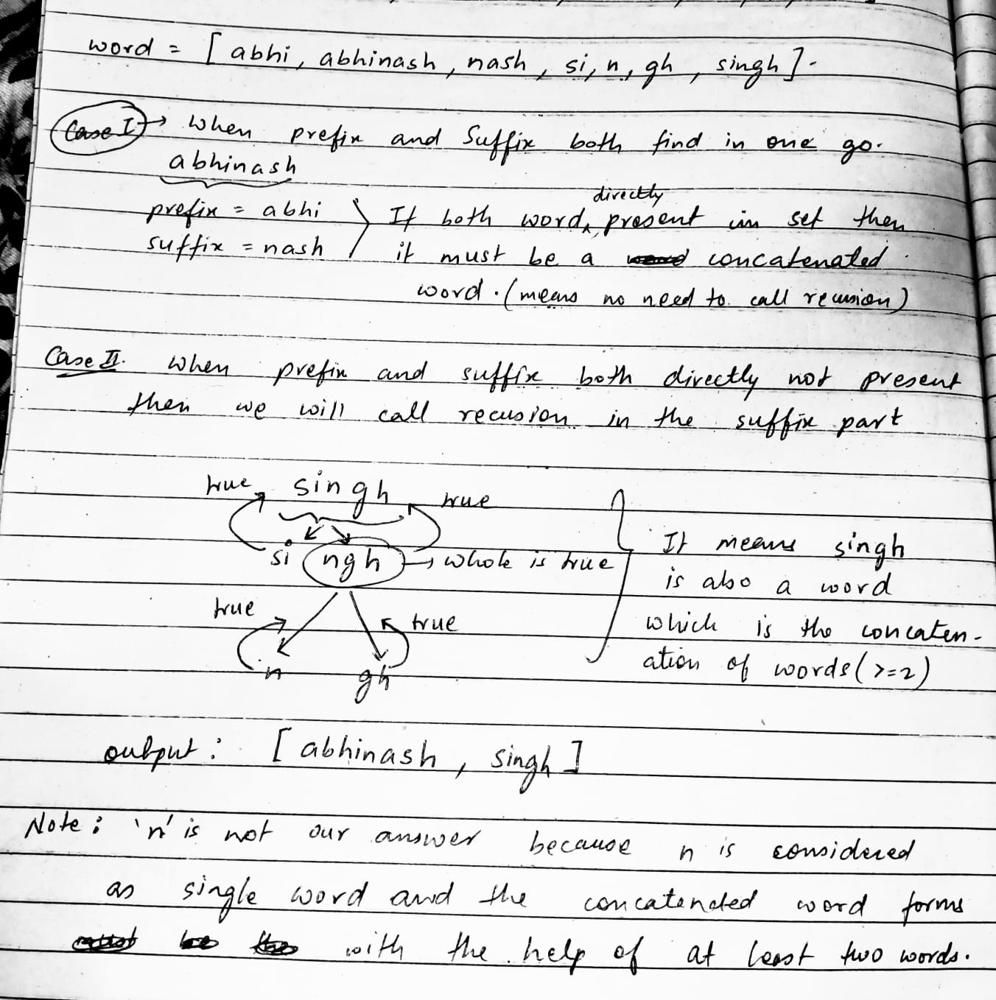 word = [ abhi, abhinash, nash, si, n, gh, singh ].
Case I → When prefix and Suffix both find in one go.
abhinash
directly
prefix = abhi If both word, present in set then
suffix = nash it must be a concatenated
word. (means no need to call recusion)
Case II. When prefix and suffix both directly not present
then we will call recusion in the suffix part
true singh true
si ngh → whole is true It means singh
is also a word
true true which is the concaten-
n gh ation of words (>=2)
output: [ abhinash, singh ]
Note: 'n' is not our answer because n is considered
as single word and the concatended word forms
with the help of at least two words.